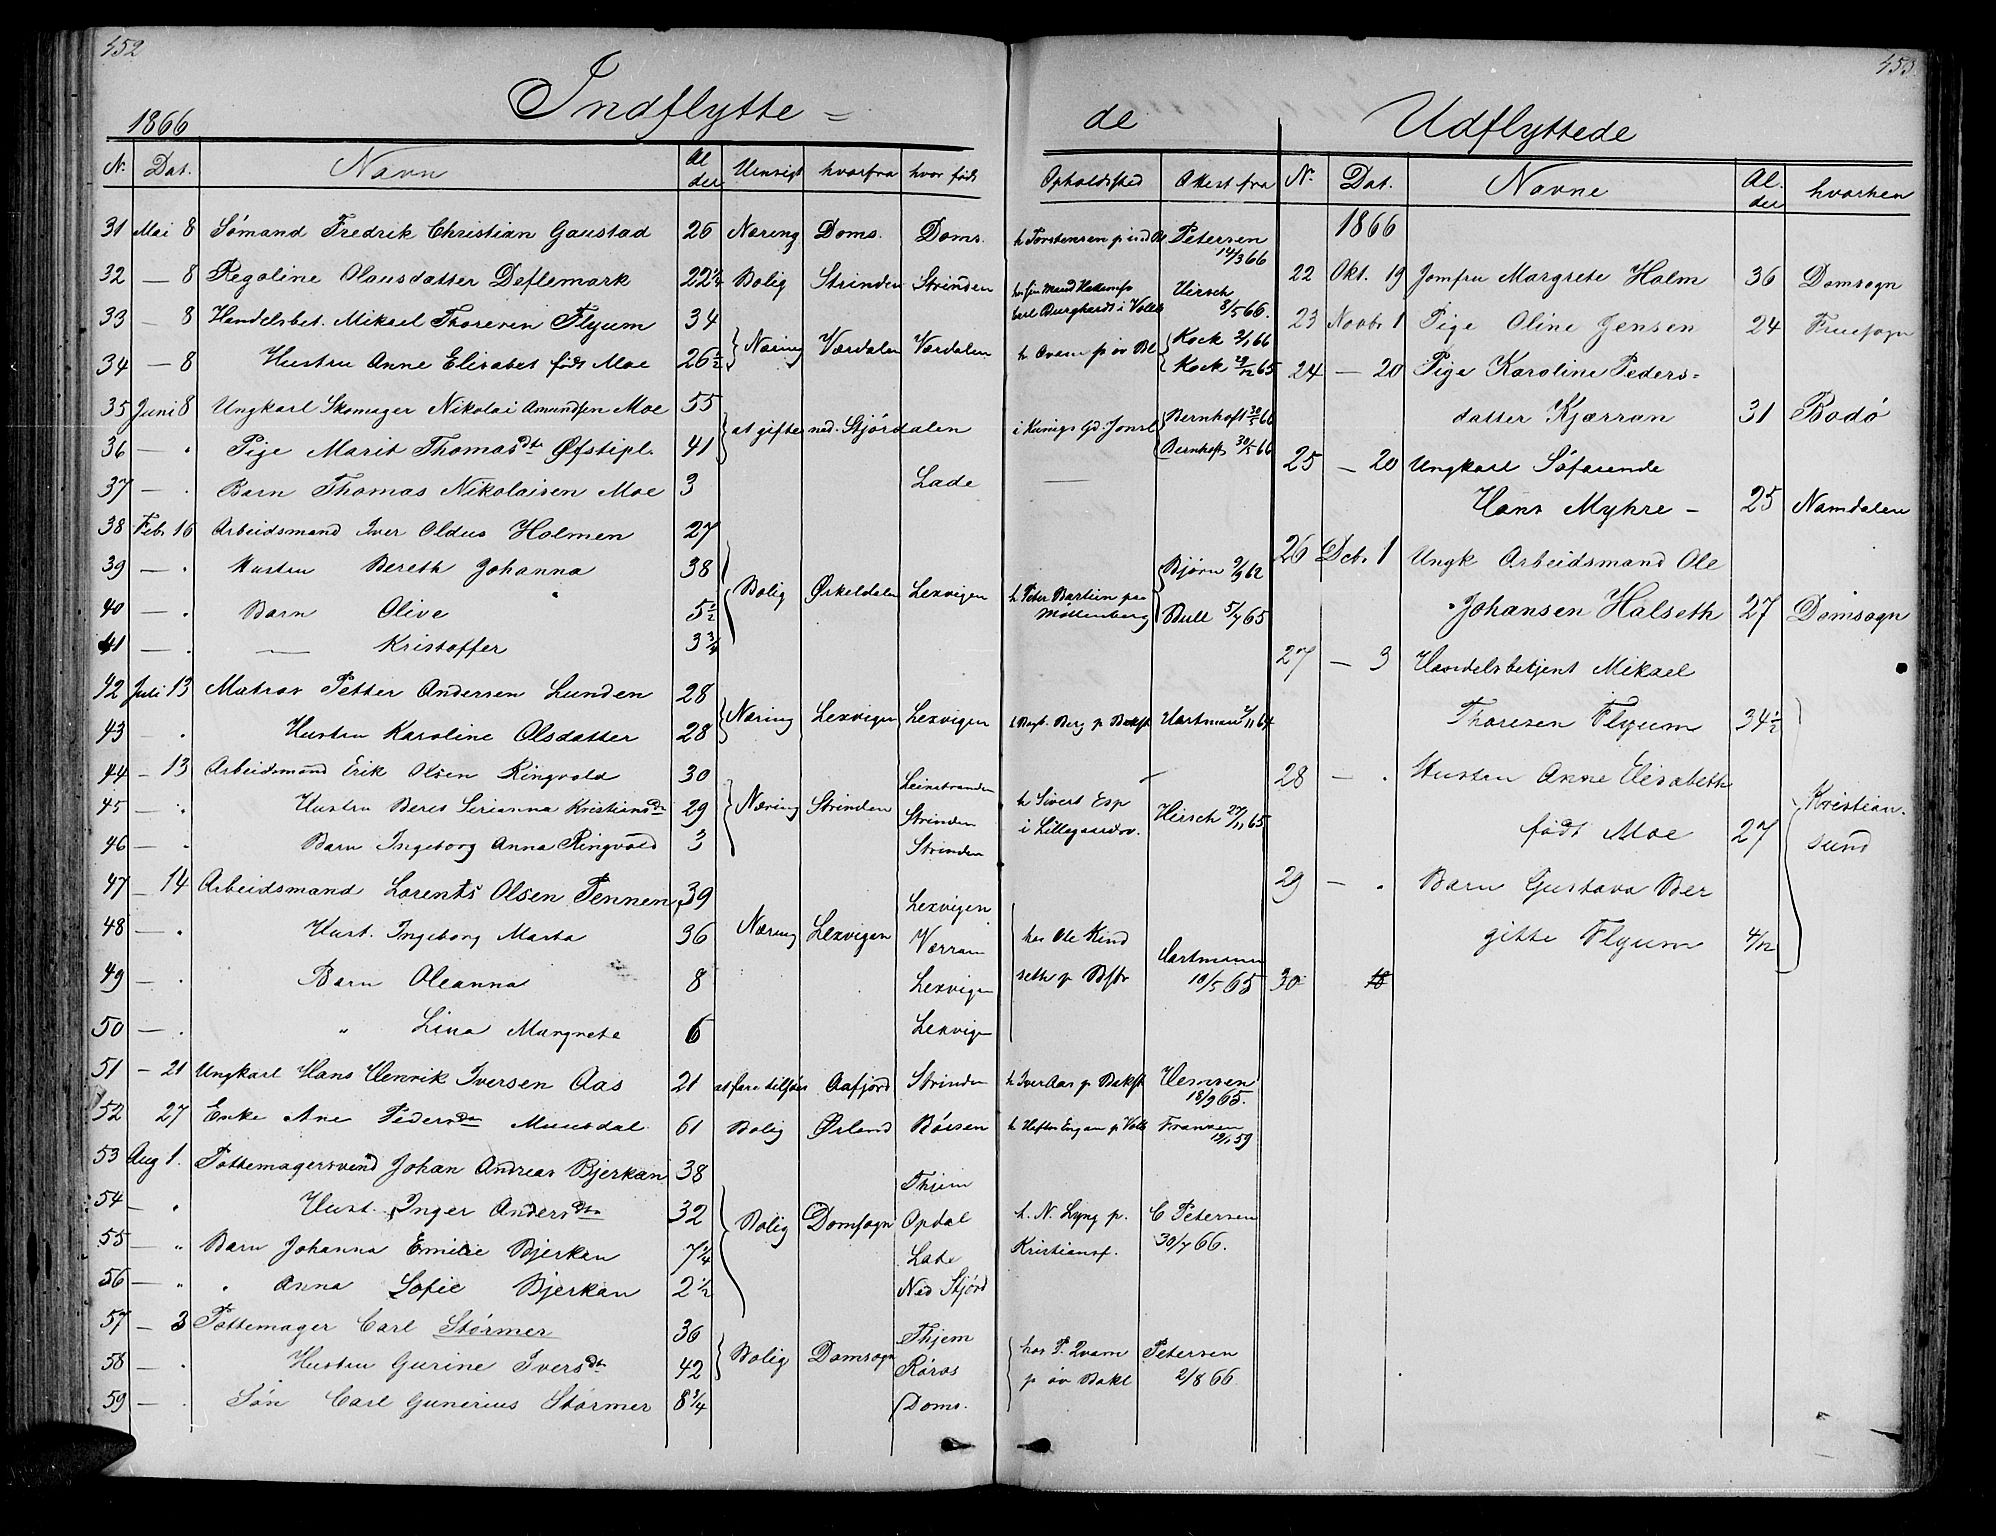 452
Indflytte =
1866
N. Dat. Navn Al der Uensigt hvorfra hvor født
31 Mai 8 Sømand Fredrik Christian Gaustad 26 Næring Doms. Doms.
32 — 8 Regoline Olausdatter Deflemark 22 1/4 Bolig Strinden Strinden
33 — 8 Handelsbet. Mikael Thoresen Flyum 34
34 — 8 Hustru Anne Elisabet født Moe 26 1/2 Næring Værdalen Værdalen
35 Juni 8 Ungkarl Skomager Nikolai Amundsen Moe 55
36 — " Pige Marit Thomasdtr Øfstipl. 41 at gifte ned. Stjørdalen
37 — " Barn Thomas Nikolaisen Moe 3 Lade
38 Feb. 16 Arbeidsmand Iver Oldus Holmen 27
39 — " Hustru Bereth Johanna 38
40 — " Barn Olive 5 1/2 Bolig Ørkeldalen Lexvigen
41 — " — Kristoffer 3 3/4
42 Juli 13 Matros Petter Andersen Lunden 28
43 — " Hustru Karoline Olsdatter 28 Næring Lexvigen Lexvigen
44 — 13 Arbeidsmand Erik Olsen Ringvold 30 Leinstranden
45 — " Hustru Beret Serianna Kristiansdtr 29 Næring Strinden Strinden
46 — " Barn Ingeborg Anna Ringvold 3 Strinden
47 — 14 Arbeidsmand Lorents Olsen Tennen 39 Lexvigen
48 — " Hust. Ingeborg Marta 36 Næring Lexvigen Værran
49 — " Barn Oleanna 8 Lexvigen
50 — " " Lina Margrete 6 Lexvigen
51 — 21 Ungkarl Hans Henrik Iversen Aas 21 at fare tilsjøes Aafjord Strinden
52 27 Enke Ane Pedersdtr Muusdal 61 Bolig Ørland Børsen
53 Aug 1. Pottemagersvend Johan Andreas Bjerkan 38 Thjem
54 — " Hust. Inger Andersdtr 32 Bolig Domsogn Opdal
55 — " Barn Johanna Emilie Bjerkan 7 1/4 Lade
56 — " " Anna Sofie Bjerkan 2 1/2 Ned Stjørd
57 — 3 Pottemager Carl Størmer 36 Thjem
58 — " Hustru Gurine Iversdtr 42 Bolig Domsogn Røros
59 — " Søn Carl Gunerius Størmer 8 3/4 Doms.
453
de
Opholdssted Attest fra
h Torstensen p. Petersen 14/3 66
Carl Burghardt i Hirsch 8/5 66.
Kock 2/1 66
h Qvam p øv Bl Kock 29/12 65
i Kunigs Gd. Jonsl Bernhoft 30/5 66
Bernhoft 30/5 66
Bjørn 9/9 62
h Peter Bartien paa Møllenberg Bull 5/7 65
h Berg p Bakl Hartmann 2/11 64
h Sivert Esp i Lillegaardsv. Hirsch 27/11 65
hos Ole Kind seth p Bkl Hartmann 10/5 65
h Iver Aas p Bakl Hemsen 18/9 65.
h p Voll Franzen 12/1 59
h. N. Lyng p. Kristiansf. C Petersen 30/7 66.
hos P. Qvam p øv Bakl Petersen 2/8 66
Udflyttede
N. Dat. Navne Al. der hvorhen
1866
22 Okt. 19 Jomfru Margrete Holm 36 Domsogn
23 Novbr 1 Pige Oline Jensen 24 Fruesogn
24 — 20 Pige Karoline Peders=
datter Kjærran 31 Bodø
25 — 20 Ungkarl Søfarende
Hans Myhre — 25 Namdalen
26 Dcb. 1 Ungk Arbeidsmand Ole
Johansen Halseth 27 Domsogn
27 — 3 Handelsbetjent Mikael
Thoresen Flyum 34 1/2
28 — " Hustru Anne Elisabeth
født Moe 27 Kristian-
sund
29 — " Barn Gustava Ber
gitte Flyum 4/12
30 18